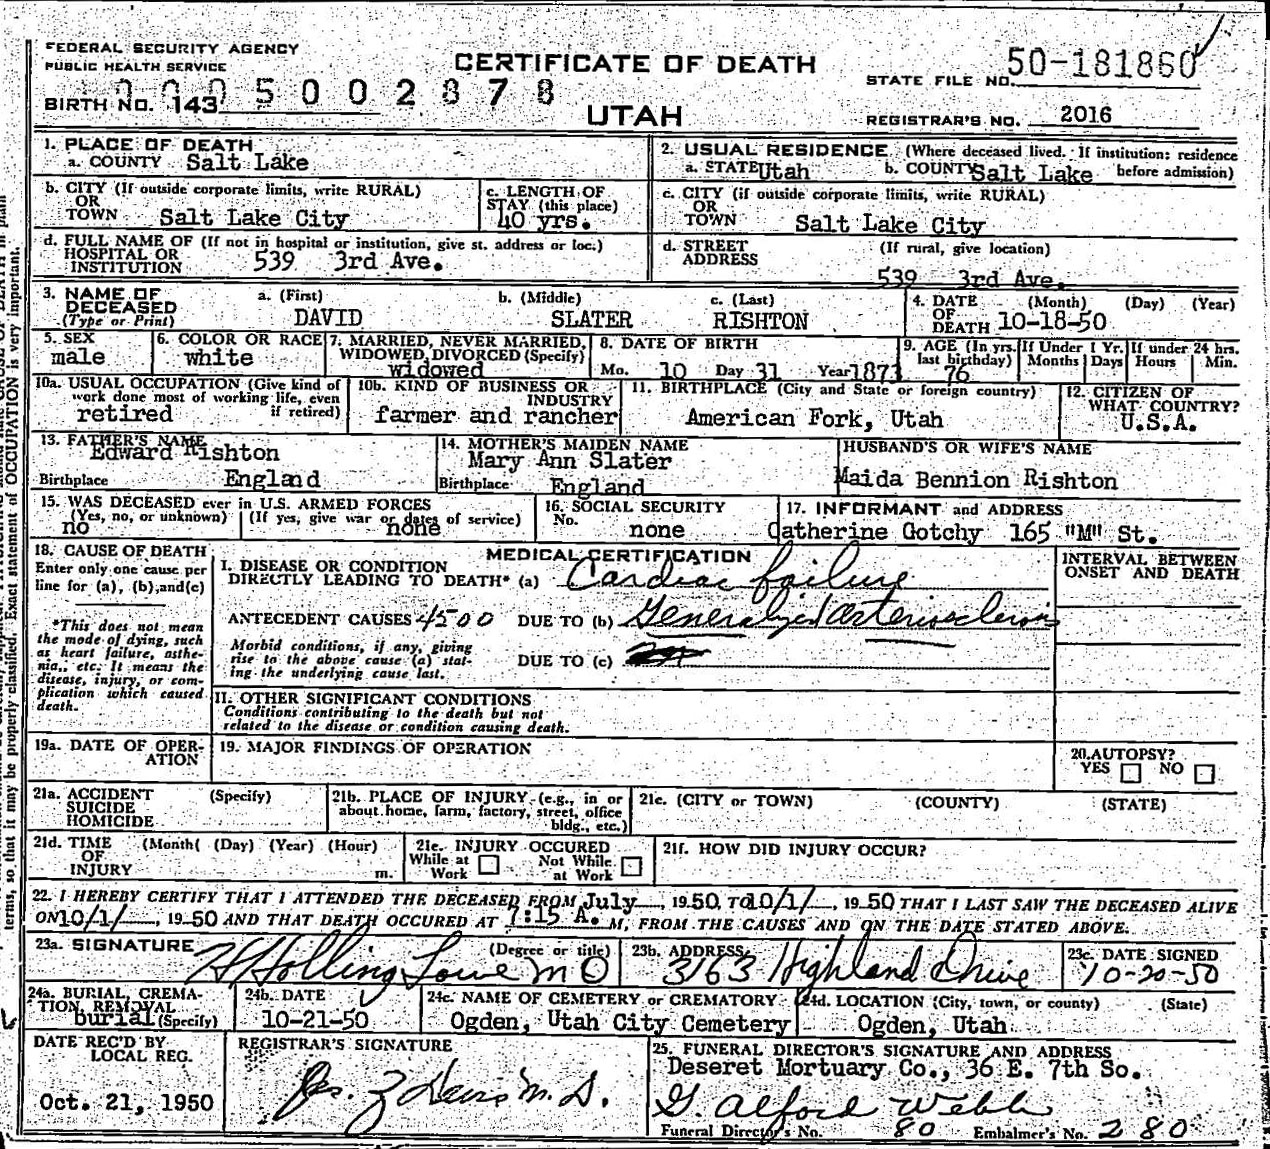 FEDERAL SECURITY AGENCY
PUBLIC HEALTH SERVICE
CERTIFICATE OF DEATH
STATE FILE NO. 50-181860
0005002878
BIRTH NO. 143
UTAH
REGISTRAR'S NO. 2016
1. PLACE OF DEATH
a. COUNTY Salt Lake
2. USUAL RESIDENCE (Where deceased lived. If institution: residence before admission)
a. STATE Utah b. COUNTY Salt Lake
b. CITY (If outside corporate limits, write RURAL)
OR
TOWN Salt Lake City
c. LENGTH OF
STAY (this place)
40 yrs.
c. CITY (if outside corporate limits, write RURAL)
OR
TOWN Salt Lake City
d. FULL NAME OF (If not in hospital or institution, give st. address or loc.)
HOSPITAL OR
INSTITUTION 539 3rd Ave.
d. STREET (If rural, give location)
ADDRESS
539 3rd Ave.
3. NAME OF
DECEASED
(Type or Print)
a. (First) b. (Middle) c. (Last)
DAVID SLATER RISHTON
4. DATE (Month) (Day) (Year)
OF
DEATH 10-18-50
5. SEX
male
6. COLOR OR RACE
white
7. MARRIED, NEVER MARRIED,
WIDOWED, DIVORCED (Specify)
widowed
8. DATE OF BIRTH
Mo. 10 Day 31 Year 1873
9. AGE (In yrs. last birthday) 76
If Under 1 Yr. Months Days
If under 24 hrs. Hours Min.
10a. USUAL OCCUPATION (Give kind of
work done most of working life, even
if retired)
retired
10b. KIND OF BUSINESS OR
INDUSTRY
farmer and rancher
11. BIRTHPLACE (City and State or foreign country)
American Fork, Utah
12. CITIZEN OF
WHAT COUNTRY?
U.S.A.
13. FATHER'S NAME
Edward Rishton
Birthplace England
14. MOTHER'S MAIDEN NAME
Mary Ann Slater
Birthplace England
HUSBAND'S OR WIFE'S NAME
Maida Bennion Rishton
15. WAS DECEASED ever in U.S. ARMED FORCES
(Yes, no, or unknown) (If yes, give war or dates of service)
no none
16. SOCIAL SECURITY
No. none
17. INFORMANT and ADDRESS
Catherine Gotchy 165 "M" St.
18. CAUSE OF DEATH
Enter only one cause per
line for (a), (b), and (c)
*This does not mean
the mode of dying, such
as heart failure, asthe-
nia, etc. It means the
disease, injury, or com-
plication which caused
death.
MEDICAL CERTIFICATION
I. DISEASE OR CONDITION
DIRECTLY LEADING TO DEATH* (a) Cardiac failure
ANTECEDENT CAUSES 4500 DUE TO (b) Generalized arteriosclerosis
Morbid conditions, if any, giving
rise to the above cause (a) stat-
ing the underlying cause last.
DUE TO (c)
INTERVAL BETWEEN
ONSET AND DEATH
II. OTHER SIGNIFICANT CONDITIONS
Conditions contributing to the death but not
related to the disease or condition causing death.
19a. DATE OF OPER-
ATION
19. MAJOR FINDINGS OF OPERATION
20. AUTOPSY?
YES NO
21a. ACCIDENT (Specify)
SUICIDE
HOMICIDE
21b. PLACE OF INJURY (e.g., in or
about home, farm, factory, street, office
bldg., etc.)
21c. (CITY or TOWN) (COUNTY) (STATE)
21d. TIME (Month( (Day) (Year) (Hour)
OF
INJURY m.
21e. INJURY OCCURED
While at Work Not While at Work
21f. HOW DID INJURY OCCUR?
22. I HEREBY CERTIFY THAT I ATTENDED THE DECEASED FROM July, 1950 TO 10/1/, 1950 THAT I LAST SAW THE DECEASED ALIVE
ON 10/1/, 1950 AND THAT DEATH OCCURED AT 7:15 A. M, FROM THE CAUSES AND ON THE DATE STATED ABOVE.
23a. SIGNATURE (Degree or title)
H Holling Lowe MD
23b. ADDRESS
3163 Highland Drive
23c. DATE SIGNED
10-20-50
24a. BURIAL, CREMA-
TION, REMOVAL
burial (Specify)
24b. DATE
10-21-50
24c. NAME OF CEMETERY or CREMATORY
Ogden, Utah City Cemetery
24d. LOCATION (City, town, or county) (State)
Ogden, Utah
DATE REC'D BY
LOCAL REG.
Oct. 21, 1950
REGISTRAR'S SIGNATURE
25. FUNERAL DIRECTOR'S SIGNATURE AND ADDRESS
Deseret Mortuary Co., 36 E. 7th So.
G. Alford Webb
Funeral Director's No. 80 Embalmer's No. 280
terms, so that it may be properly classified. Exact statement of OCCUPATION is very important.